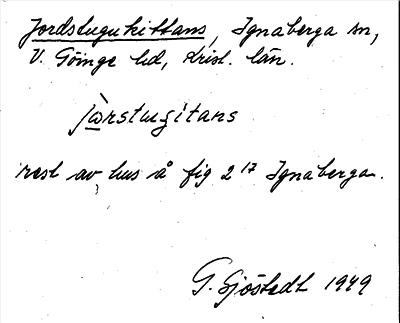 Jordstugukittans, Ignaberga sn,
V. Göinge hd, Krist. län.
jɷrstugitans
rest av hus å fig 2 17 Ignaberga.
G. Sjöstedt 1949